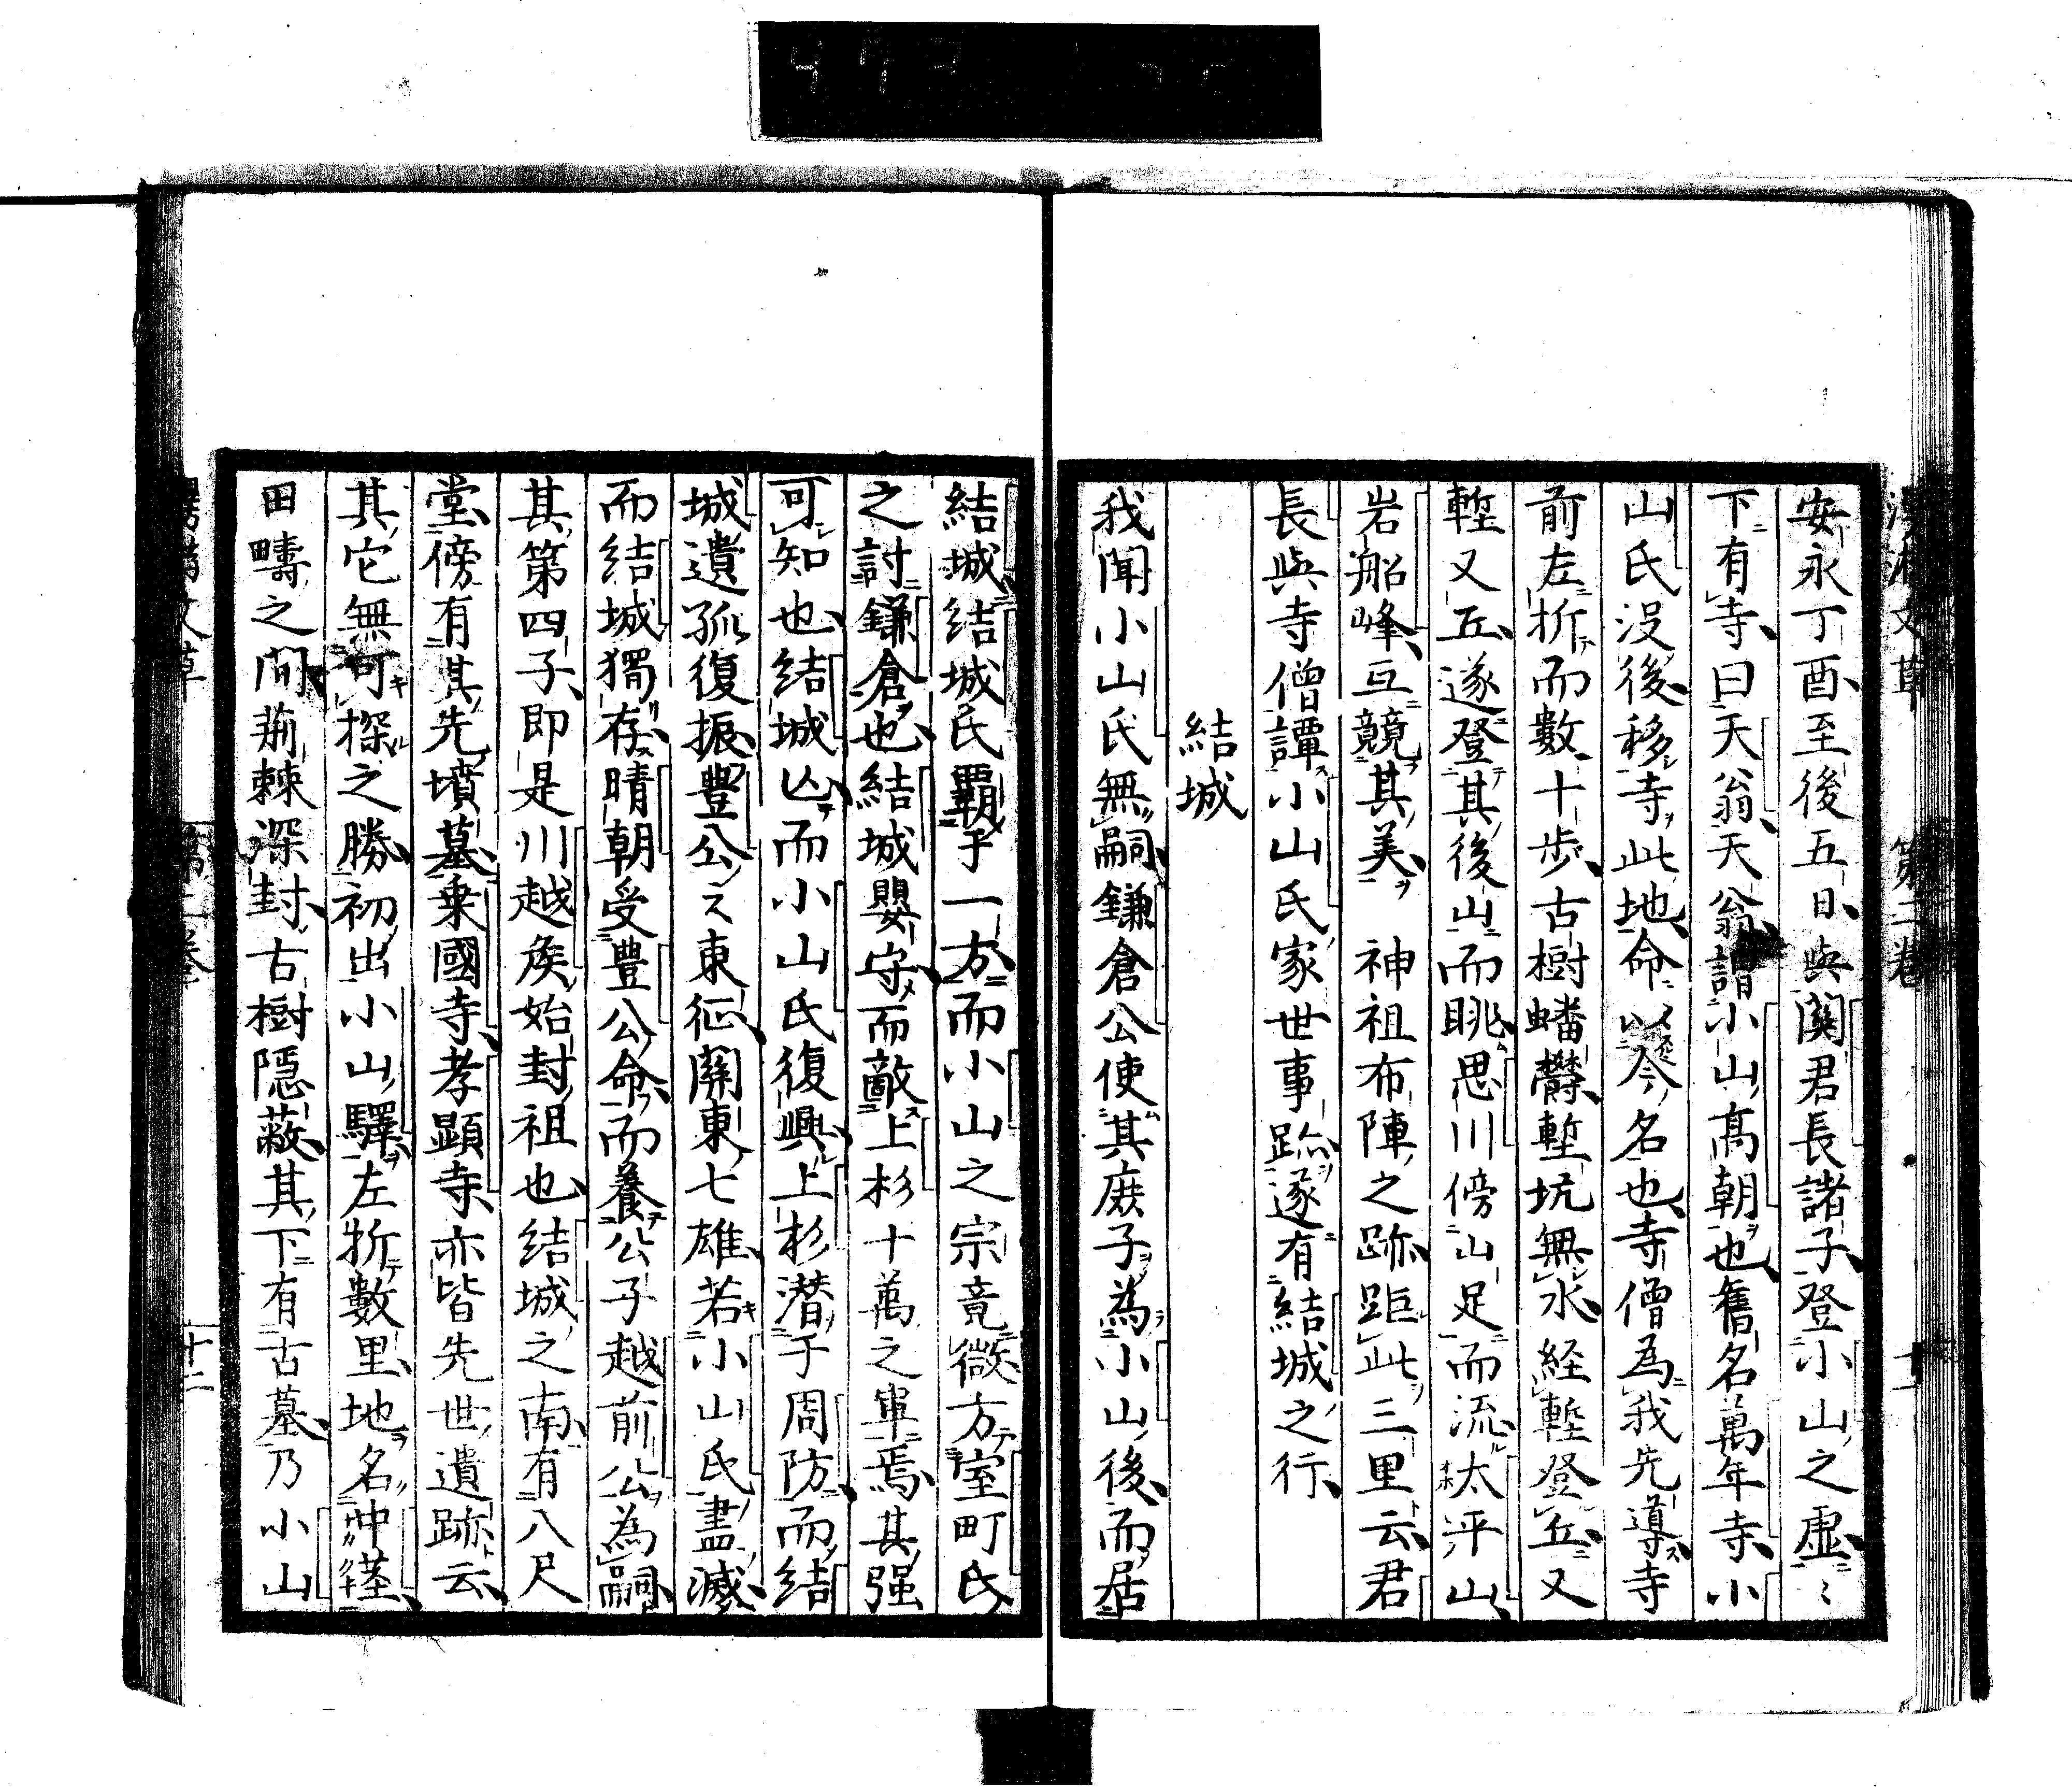 安永丁酉至後五日與関君長諸子登小山之虚〻
下有寺曰天翁天翁謂小山髙朝也舊名萬年寺小
山氏没後移寺此地命以今名也寺僧為我先導寺
前左折而數十歩古樹蟠欝塹坑無水経塹登丘又
塹又丘遂登其後山而眺思川傍山足而流太平山
岩船峰互競其美 神祖布陣之跡距此三里云君
長與寺僧譚小山氏家世事跡遂有結城之行
結城
我聞小山氏無嗣鎌倉公使其庶子為小山後而居
結城結城氏覇乎一方而小山之宗竟微方室町氏
之討鎌倉也結城嬰守而敵上杉十萬之軍焉其强
可知也結城亾而小山氏復興上杉潜于周防而結
城遺孤復振豊公之東征関東七雄若小山氏盡滅
而結城獨存晴朝受豊公命而養公子越前公為嗣
其第四子即是川越矦始封祖也結城之南有八尺
堂傍有其先墳墓乗國寺孝顕寺亦皆先世遺跡云
其它無可探之勝初出小山驛左折數里地名中
田疇之間荊棘深封古樹隠蔽其下有古墓乃小山
文草 第二巻
文草 十二